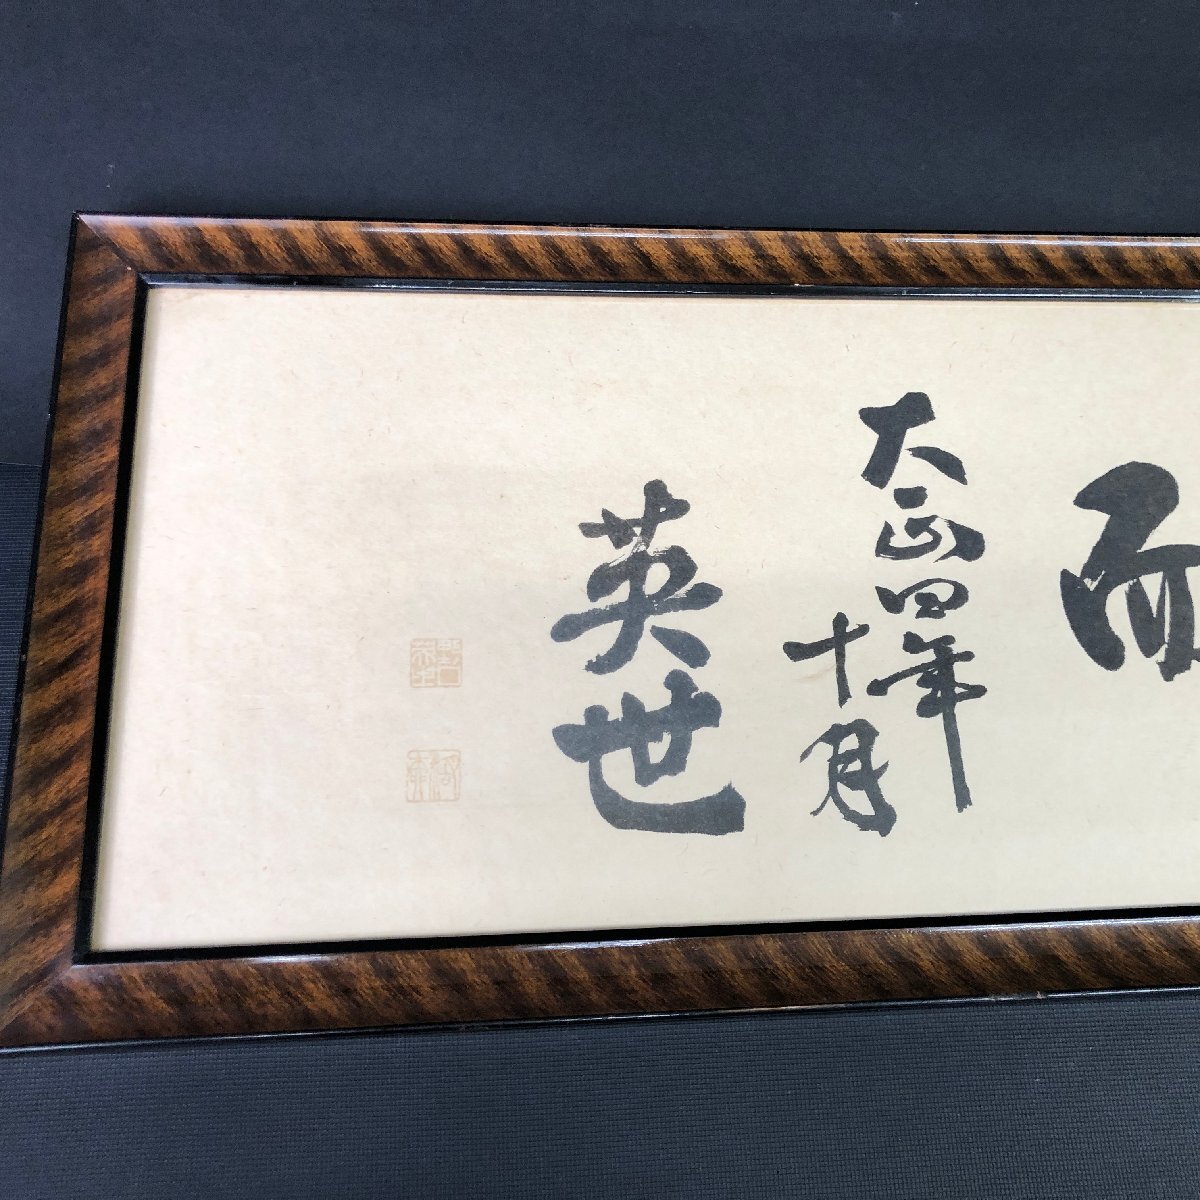 而
大正四年
十月
英世